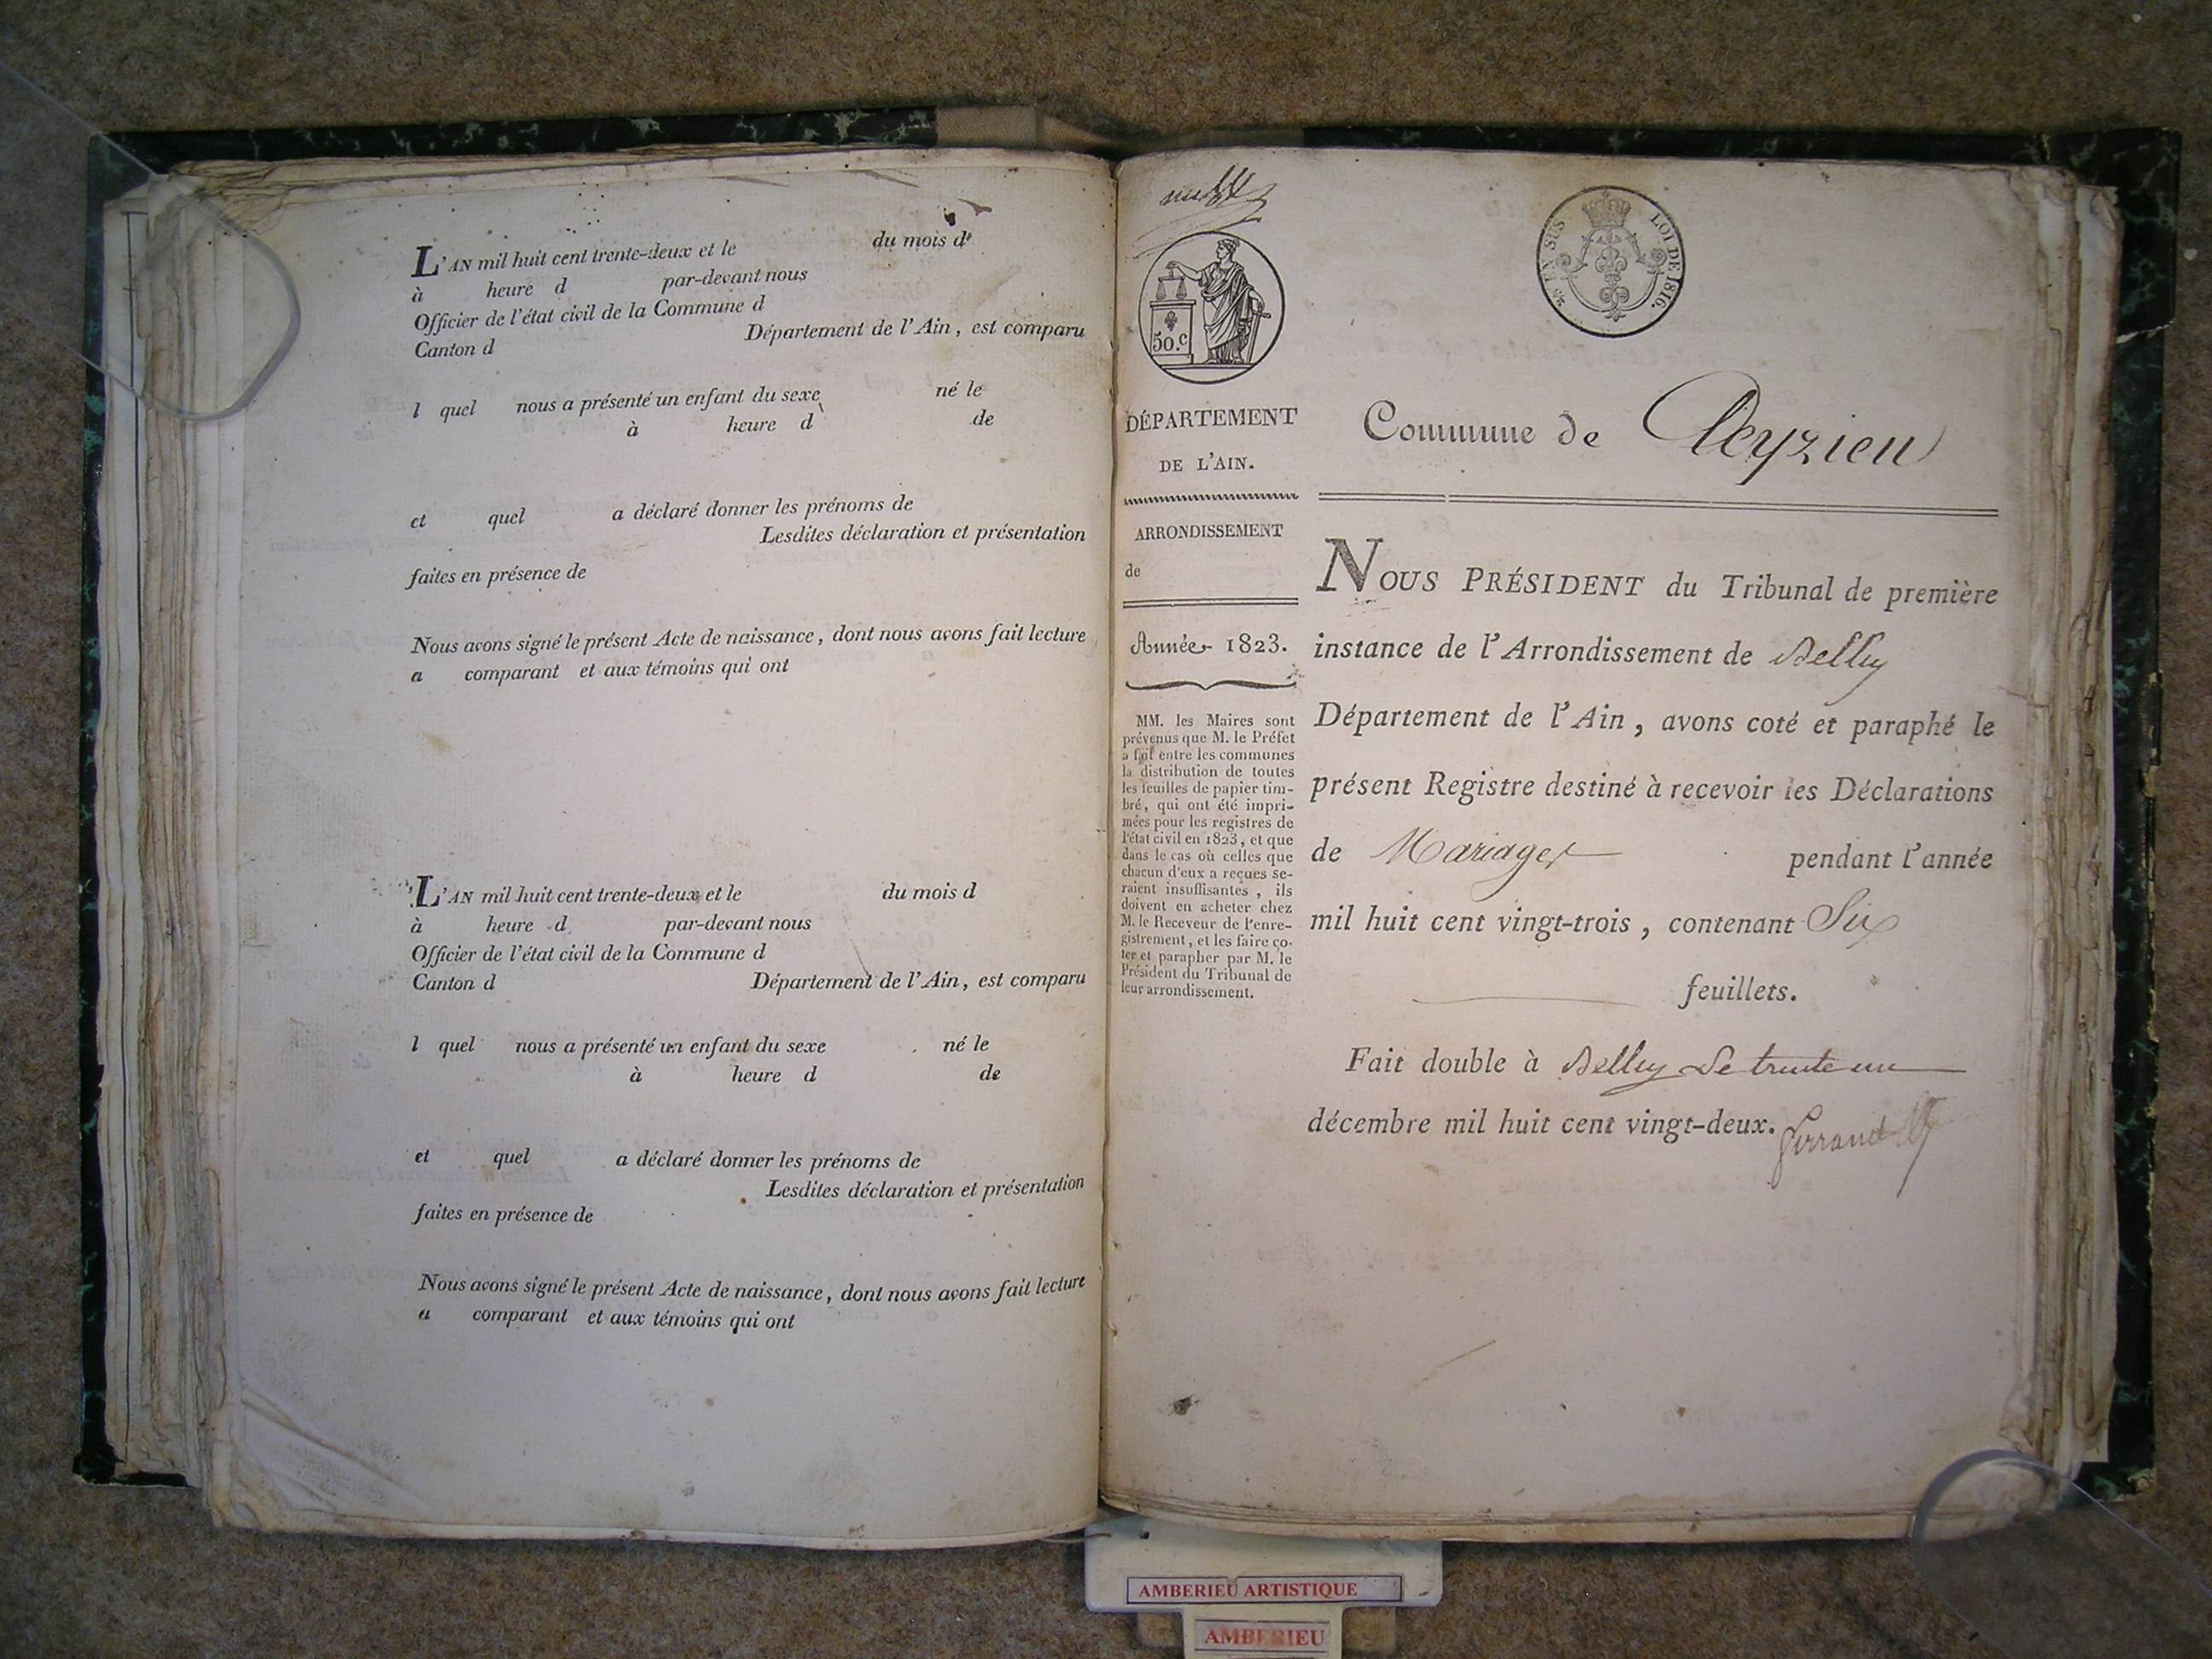 L'AN mil huit cent trente-deux et le du mois d
à heure d par-devant nous
Officier de l'état civil de la Commune d
Canton d Département de l'Ain, est comparu
l quel nous a présenté un enfant du sexe né le
à heure d de
et quel a déclaré donner les prénoms de
Lesdites déclaration et présentation
faites en présence de
Nous avons signé le présent Acte de naissance, dont nous avons fait lecture
a comparant et aux témoins qui ont
L'AN mil huit cent trente-deux et le du mois d
à heure d par-devant nous
Officier de l'état civil de la Commune d
Canton d Département de l'Ain, est comparu
l quel nous a présenté un enfant du sexe né le
à heure d de
et quel a déclaré donner les prénoms de
Lesdites déclaration et présentation
faites en présence de
Nous avons signé le présent Acte de naissance, dont nous avons fait lecture
a comparant et aux témoins qui ont
50.c
EN SUS LOI DE 1816.
DÉPARTEMENT
DE L'AIN.
ARRONDISSEMENT
de
Année 1823.
MM. les Maires sont
prévenus que M. le Préfet
a fait entre les communes
la distribution de toutes
les feuilles de papier tim-
bré, qui ont été impri-
mées pour les registres de
l'état civil en 1823, et que
dans le cas où celles que
chacun d'eux a reçues se-
raient insuffisantes, ils
doivent en acheter chez
M. le Receveur de l'enre-
gistrement, et les faire co-
ter et parapher par M. le
Président du Tribunal de
leur arrondissement.
Commune de Cleyzieu
NOUS PRÉSIDENT du Tribunal de première
instance de l'Arrondissement de Belley
Département de l'Ain, avons coté et paraphé le
présent Registre destiné à recevoir les Déclarations
de Mariages pendant l'année
mil huit cent vingt-trois, contenant Six
feuillets.
Fait double à Belley Le trente un
décembre mil huit cent vingt-deux.
AMBERIEU ARTISTIQUE
AMBERIEU